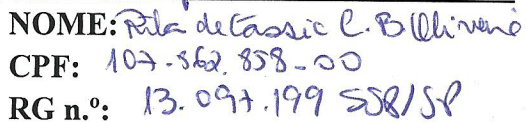 NOME: Rita de Cassia C. B Oliveira
CPF: 107.862.858-00
RG n.º: 13.097.199 SSP/SP